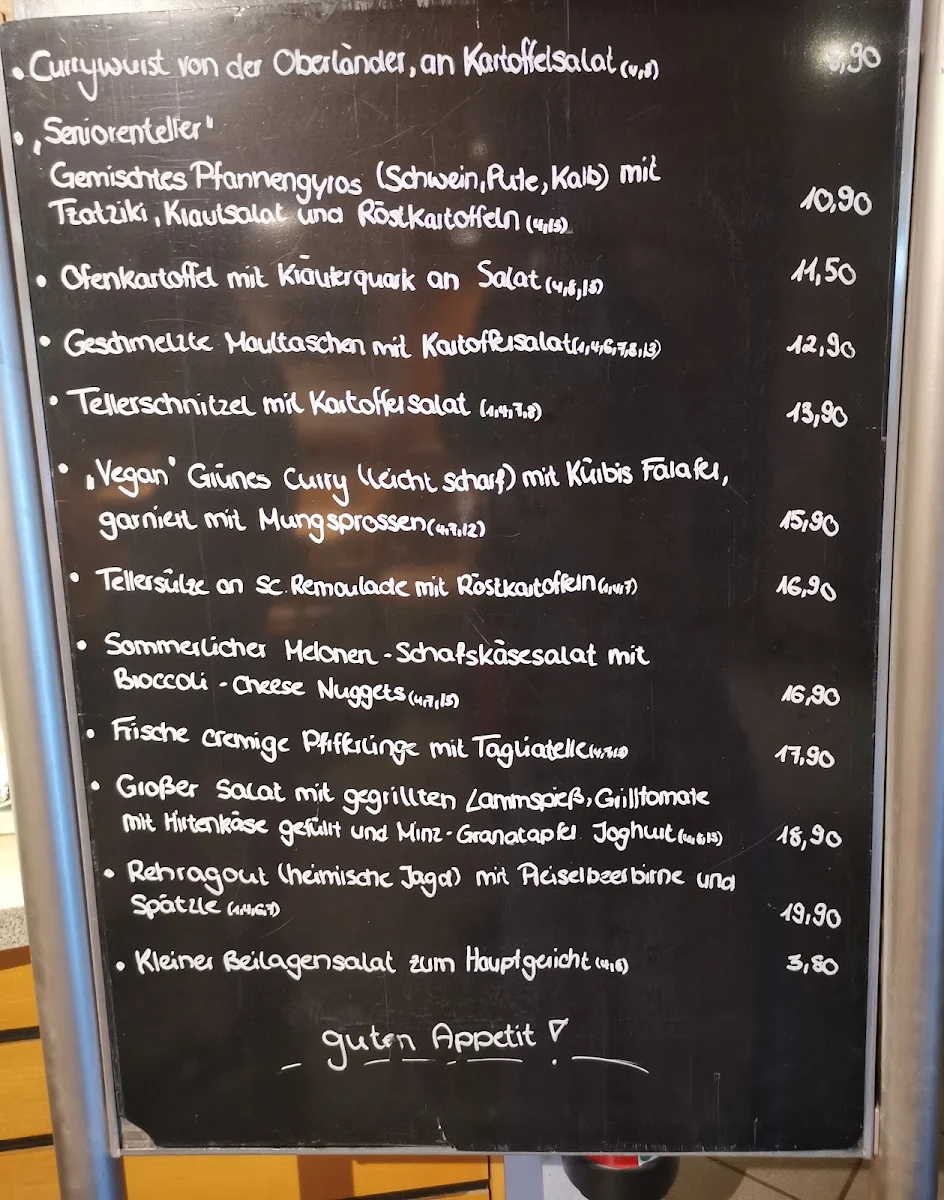 • Currywurst von der Oberländer, an Kartoffelsalat (4,8) ,90
• „Seniorenteller"
Gemischtes Pfannengyros (Schwein, Pute, Kalb) mit
Tzatziki, Krautsalat und Röstkartoffeln 10,90
• Ofenkartoffel mit Kräuterquark an Salat (4,6,13) 11,50
• Geschmelzte Maultaschen mit Kartoffelsalat (1,4,6,7,8,13) 12,90
• Tellerschnitzel mit Kartoffelsalat (1,4,7,8) 13,90
• „Vegan" Grünes Curry (leicht scharf) mit Kürbis Falafel,
garniert mit Mungsprossen (4,7,12) 15,90
• Tellersülze an Sc. Remoulade mit Röstkartoffeln (1,4,7) 16,90
• Sommerlicher Melonen - Schafskäsesalat mit
Broccoli - Cheese Nuggets 16,90
• Frische cremige Pfifferlinge mit Tagliatelle 17,90
• Großer Salat mit gegrillten Lammspieß, Grilltomate
mit Hirtenkäse gefüllt und Minz-Granatapfel Joghurt (4,6,13) 18,90
• Rehragout (heimische Jagd) mit Preiselbeerbirne und
Spätzle (1,4,6,7) 19,90
• Kleiner Beilagensalat zum Hauptgericht (4,6) 3,80
guten Appetit!